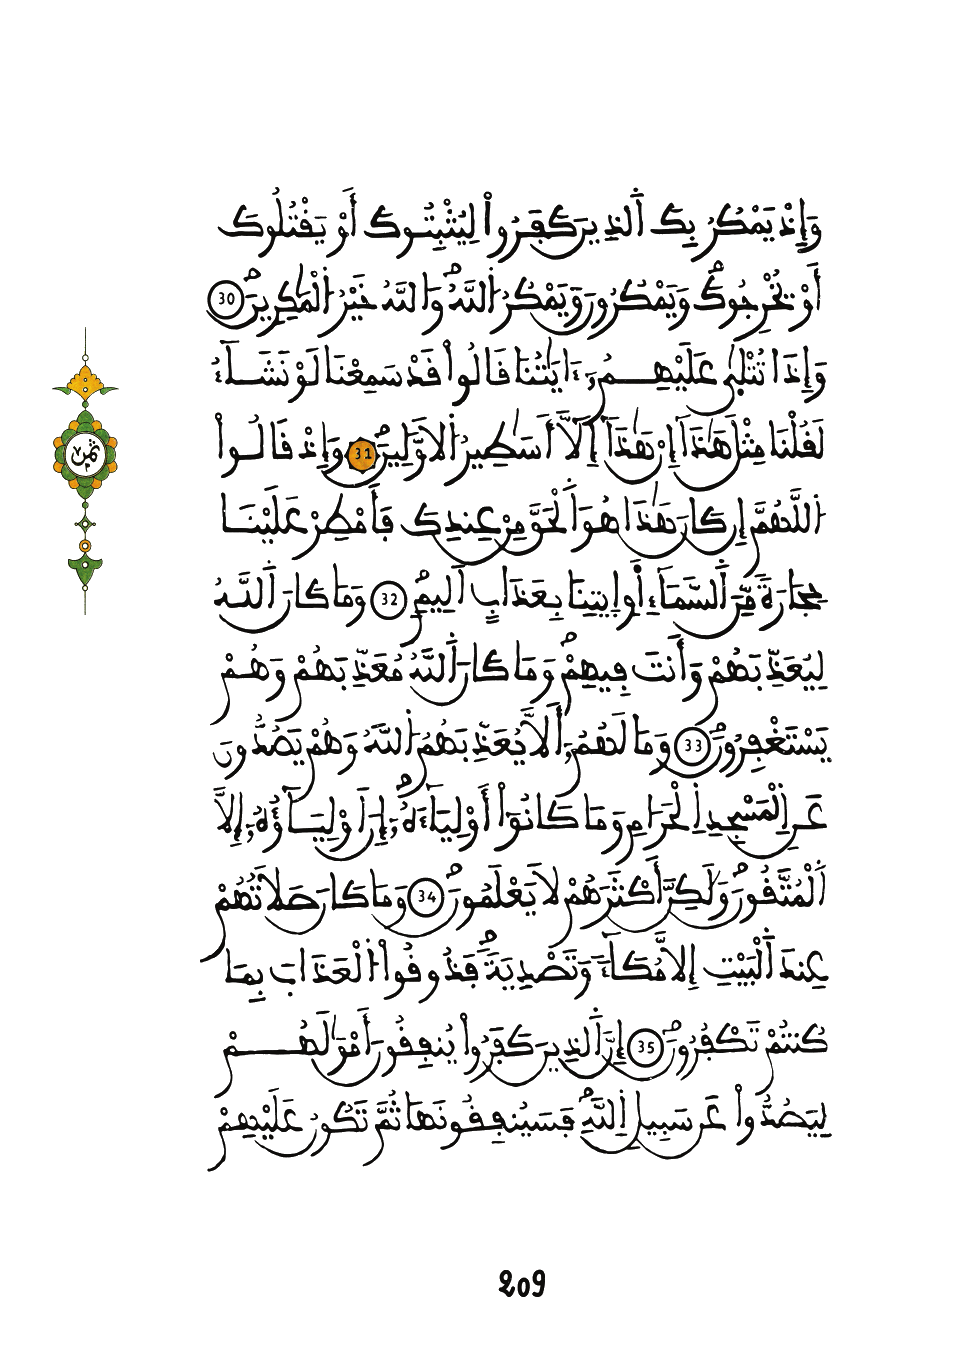 وَإِذْ يَمْكُرُ بِكَ اَ۬لذِينَ كَفَرُواْ لِيُثْبِتُوكَ أَوْ يَقْتُلُوكَ
أَوْ يُخْرِجُوكَۖ وَيَمْكُرُونَ وَيَمْكُرُ اُ۬للَّهُۖ وَاللَّهُ خَيْرُ اُ۬لْمَٰكِرِينَۖ 30
وَإِذَا تُتْلَىٰ عَلَيْهِمُۥٓ ءَايَٰتُنَا قَالُواْ قَدْ سَمِعْنَا لَوْ نَشَآءُ
لَقُلْنَا مِثْلَ هَٰذَآ إِنْ هَٰذَآ إِلَّآ أَسَٰطِيرُ اُ۬لَاوَّلِينَۖ 31 وَإِذْ قَالُواْ
اُ۬للَّهُمَّ إِن كَانَ هَٰذَا هُوَ اَ۬لْحَقَّ مِنْ عِندِكَ فَأَمْطِرْ عَلَيْنَا
حِجَارَةٗ مِّنَ اَ۬لسَّمَآءِ اَ۬وِ اِ۪يتِنَا بِعَذَابٍ اَلِيمٖۖ 32 وَمَا كَانَ اَ۬للَّهُ
لِيُعَذِّبَهُمْ وَأَنتَ فِيهِمْۖ وَمَا كَانَ اَ۬للَّهُ مُعَذِّبَهُمْ وَهُمْ
يَسْتَغْفِرُونَۖ 33 وَمَا لَهُمُۥٓ أَلَّا يُعَذِّبَهُمُ اُ۬للَّهُ وَهُمْ يَصُدُّونَ
عَنِ اِ۬لْمَسْجِدِ اِ۬لْحَرَامِ وَمَا كَانُوٓاْ أَوْلِيَآءَهُۥٓۖ إِنَ اَوْلِيَآؤُهُۥٓ إِلَّا
اَ۬لْمُتَّقُونَۖ وَلَٰكِنَّ أَكْثَرَهُمْ لَا يَعْلَمُونَۖ 34 وَمَا كَانَ صَلَاتُهُمْ
عِندَ اَ۬لْبَيْتِ إِلَّا مُكَآءٗ وَتَصْدِيَةٗۖ فَذُوقُواْ اُ۬لْعَذَابَ بِمَا
كُنتُمْ تَكْفُرُونَۖ 35 إِنَّ اَ۬لذِينَ كَفَرُواْ يُنفِقُونَ أَمْوَٰلَهُمْ
لِيَصُدُّواْ عَن سَبِيلِ اِ۬للَّهِۖ فَسَيُنفِقُونَهَا ثُمَّ تَكُونُ عَلَيْهِمْ
ثمن
209